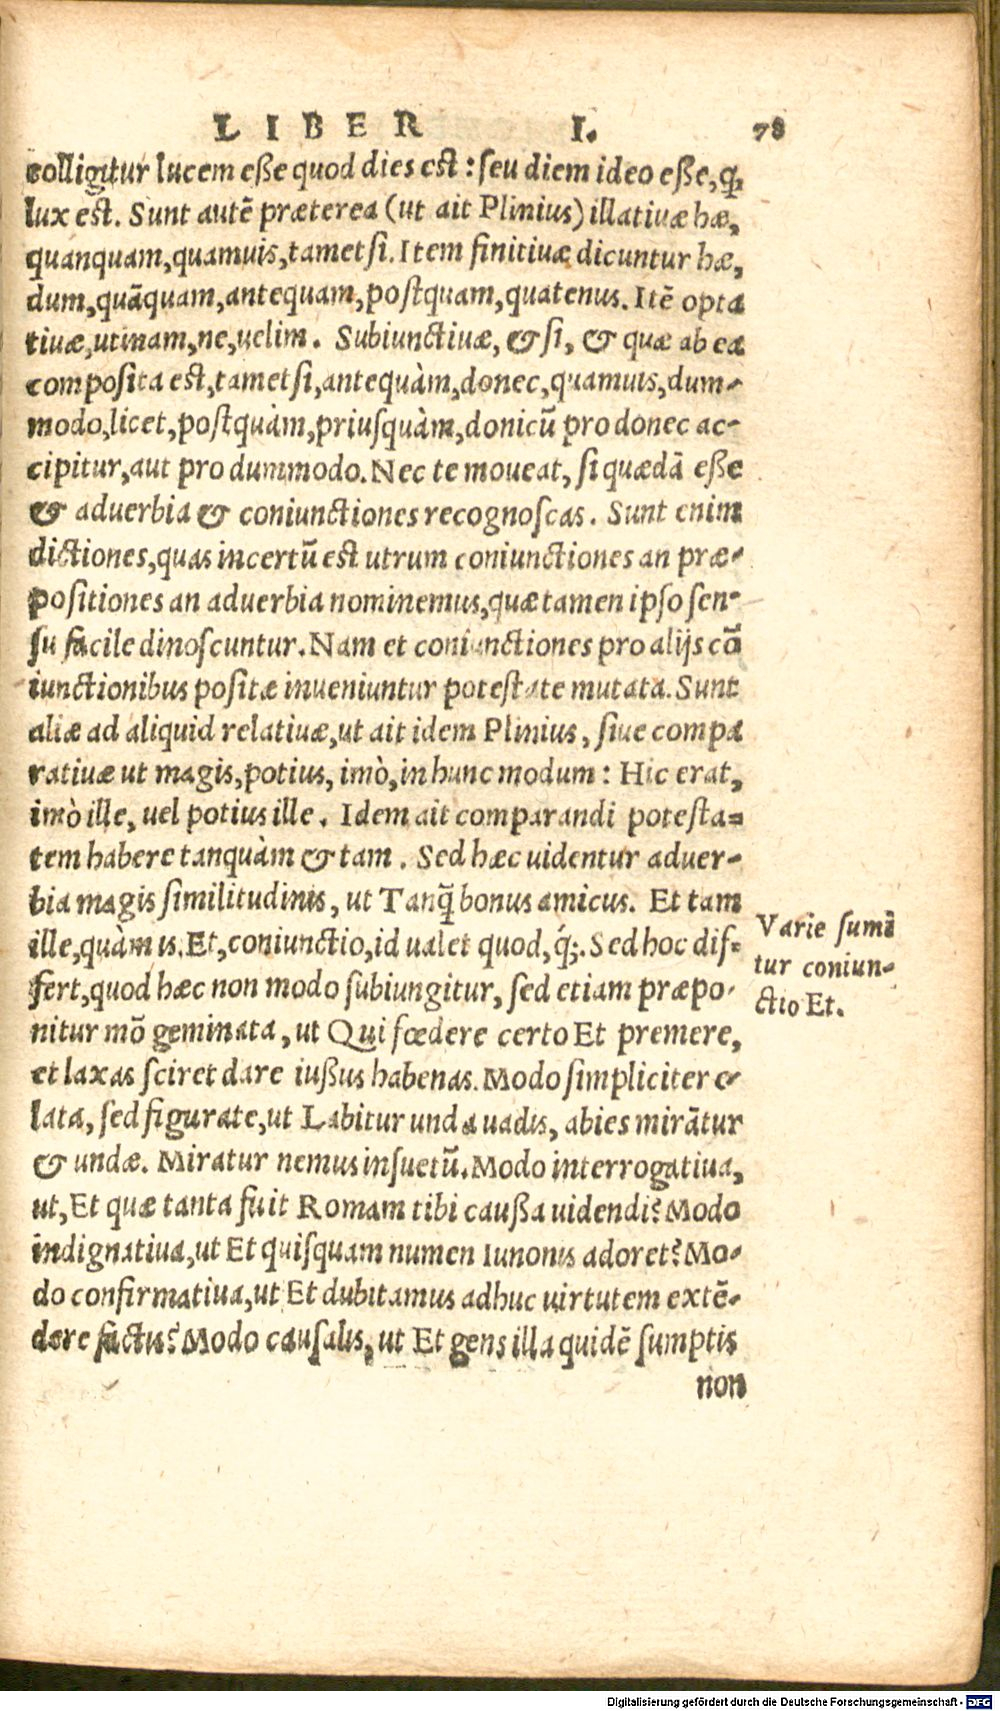 LIBER I. 78
colligitur lucem eße quod dies est: seu diem ideo eße, q̃
lux est. Sunt autē præterea (ut ait Plinius) illatiuæ hæ,
quanquam, quamuis, tametsi. Item finitiuæ dicuntur hæ,
dum, quāquam, antequam, postquam, quatenus. Itē opta
tiuæ, utinam, ne, uelim. Subiunctiuæ, & si, & quæ ab ea
composita est, tametsi, antequàm, donec, quamuis, dum-
modo, licet, postquàm, priusquàm, donicū pro donec ac-
cipitur, aut pro dummodo. Nec te moueat, si quædā eße
& aduerbia & coniunctiones recognoscas. Sunt enim
dictiones, quas incertū est utrum coniunctiones an præ-
positiones an aduerbia nominemus, quæ tamen ipso sen-
su facile dinoscuntur. Nam et coniunctiones pro alijs cō
iunctionibus positæ inueniuntur potestate mutata. Sunt
aliæ ad aliquid relatiuæ, ut ait idem Plinius, siue compa
ratiuæ ut magis, potius, imò, in hunc modum: Hic erat,
imò ille, uel potius ille. Idem ait comparandi potesta-
tem habere tanquàm & tam. Sed hæc uidentur aduer-
bia magis similitudinis, ut Tanq̃ bonus amicus. Et tam
ille, quàm is. Et, coniunctio, id ualet quod, q́;. Sed hoc dif-
fert, quod hæc non modo subiungitur, sed etiam præpo-
nitur mō geminata, ut Qui fœdere certo Et premere,
et laxas sciret dare iußus habenas. Modo simpliciter e-
lata, sed figurate, ut Labitur unda uadis, abies mirātur
& undæ. Miratur nemus insuetū. Modo interrogatiua,
ut, Et quæ tanta fuit Romam tibi caußa uidendi? Modo
indignatiua, ut Et quisquam numen Iunonis adoret? Mo-
do confirmatiua, ut Et dubitamus adhuc uirtutem extē-
dere factis? Modo causalis, ut Et gens illa quidē sumptis
non
Varie sumi
tur coniun-
ctio Et.
Digitalisierung gefördert durch die Deutsche Forschungsgemeinschaft - DFG